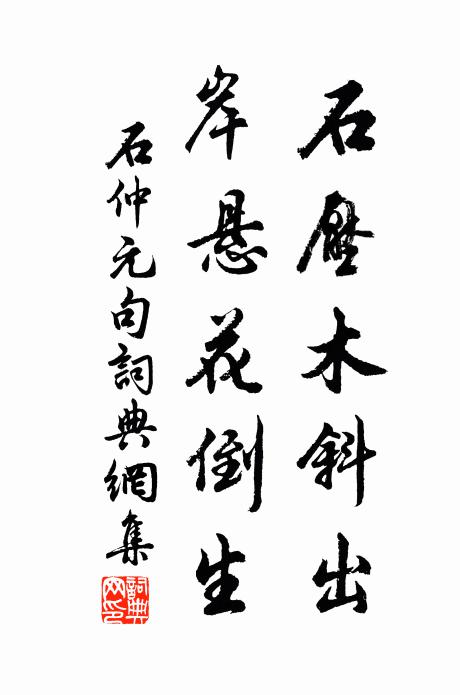 石壓木斜出
岸懸花倒生
石仲元句詞典網集
詞典網印